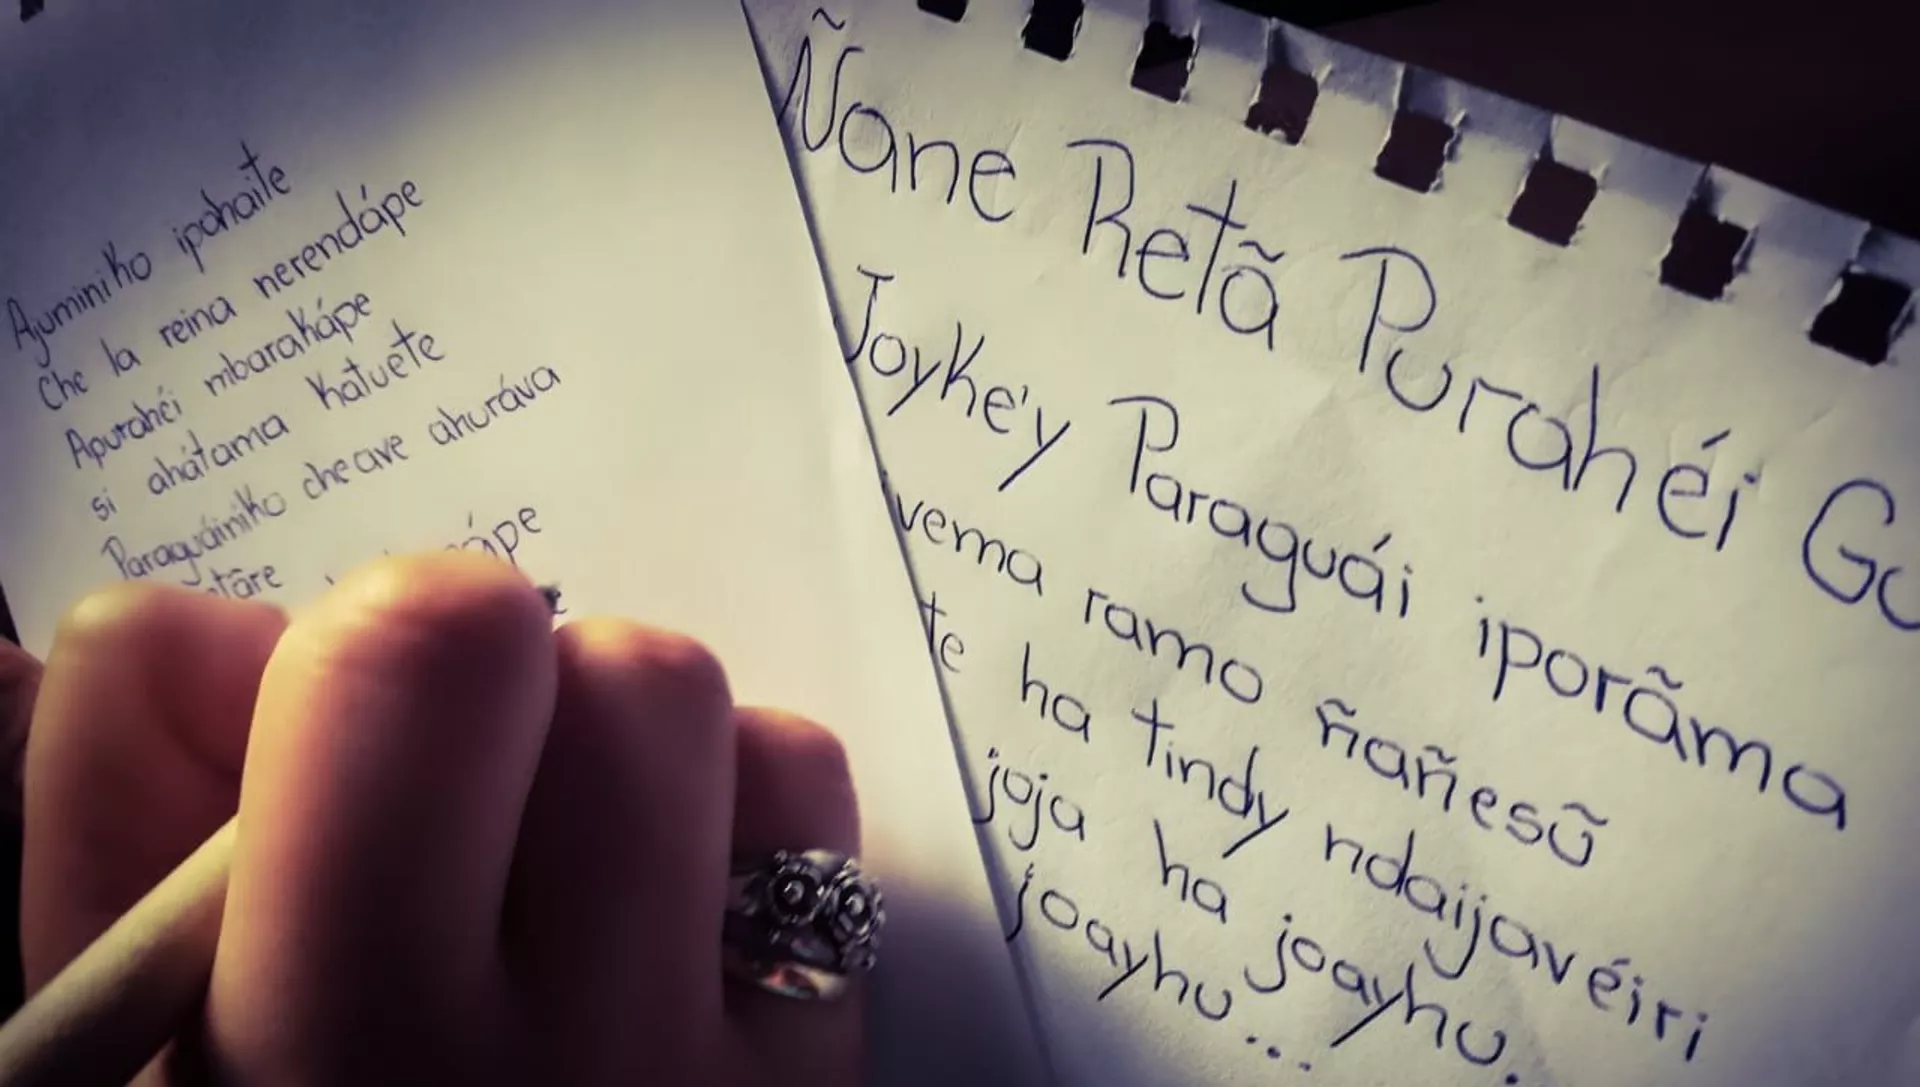 Ajuminiko ipahaite
Che la reina nerendápe
Apurahéi mbarakápe
si ahátama katuete
Paraguáiniko cheave ahuráva
Ñane Retã Purahéi
Joyke'y Paraguái iporãma
vema ramo ñañesũ
te ha tindy ndaijavéiri
joja ha joayhu.
joayhu...